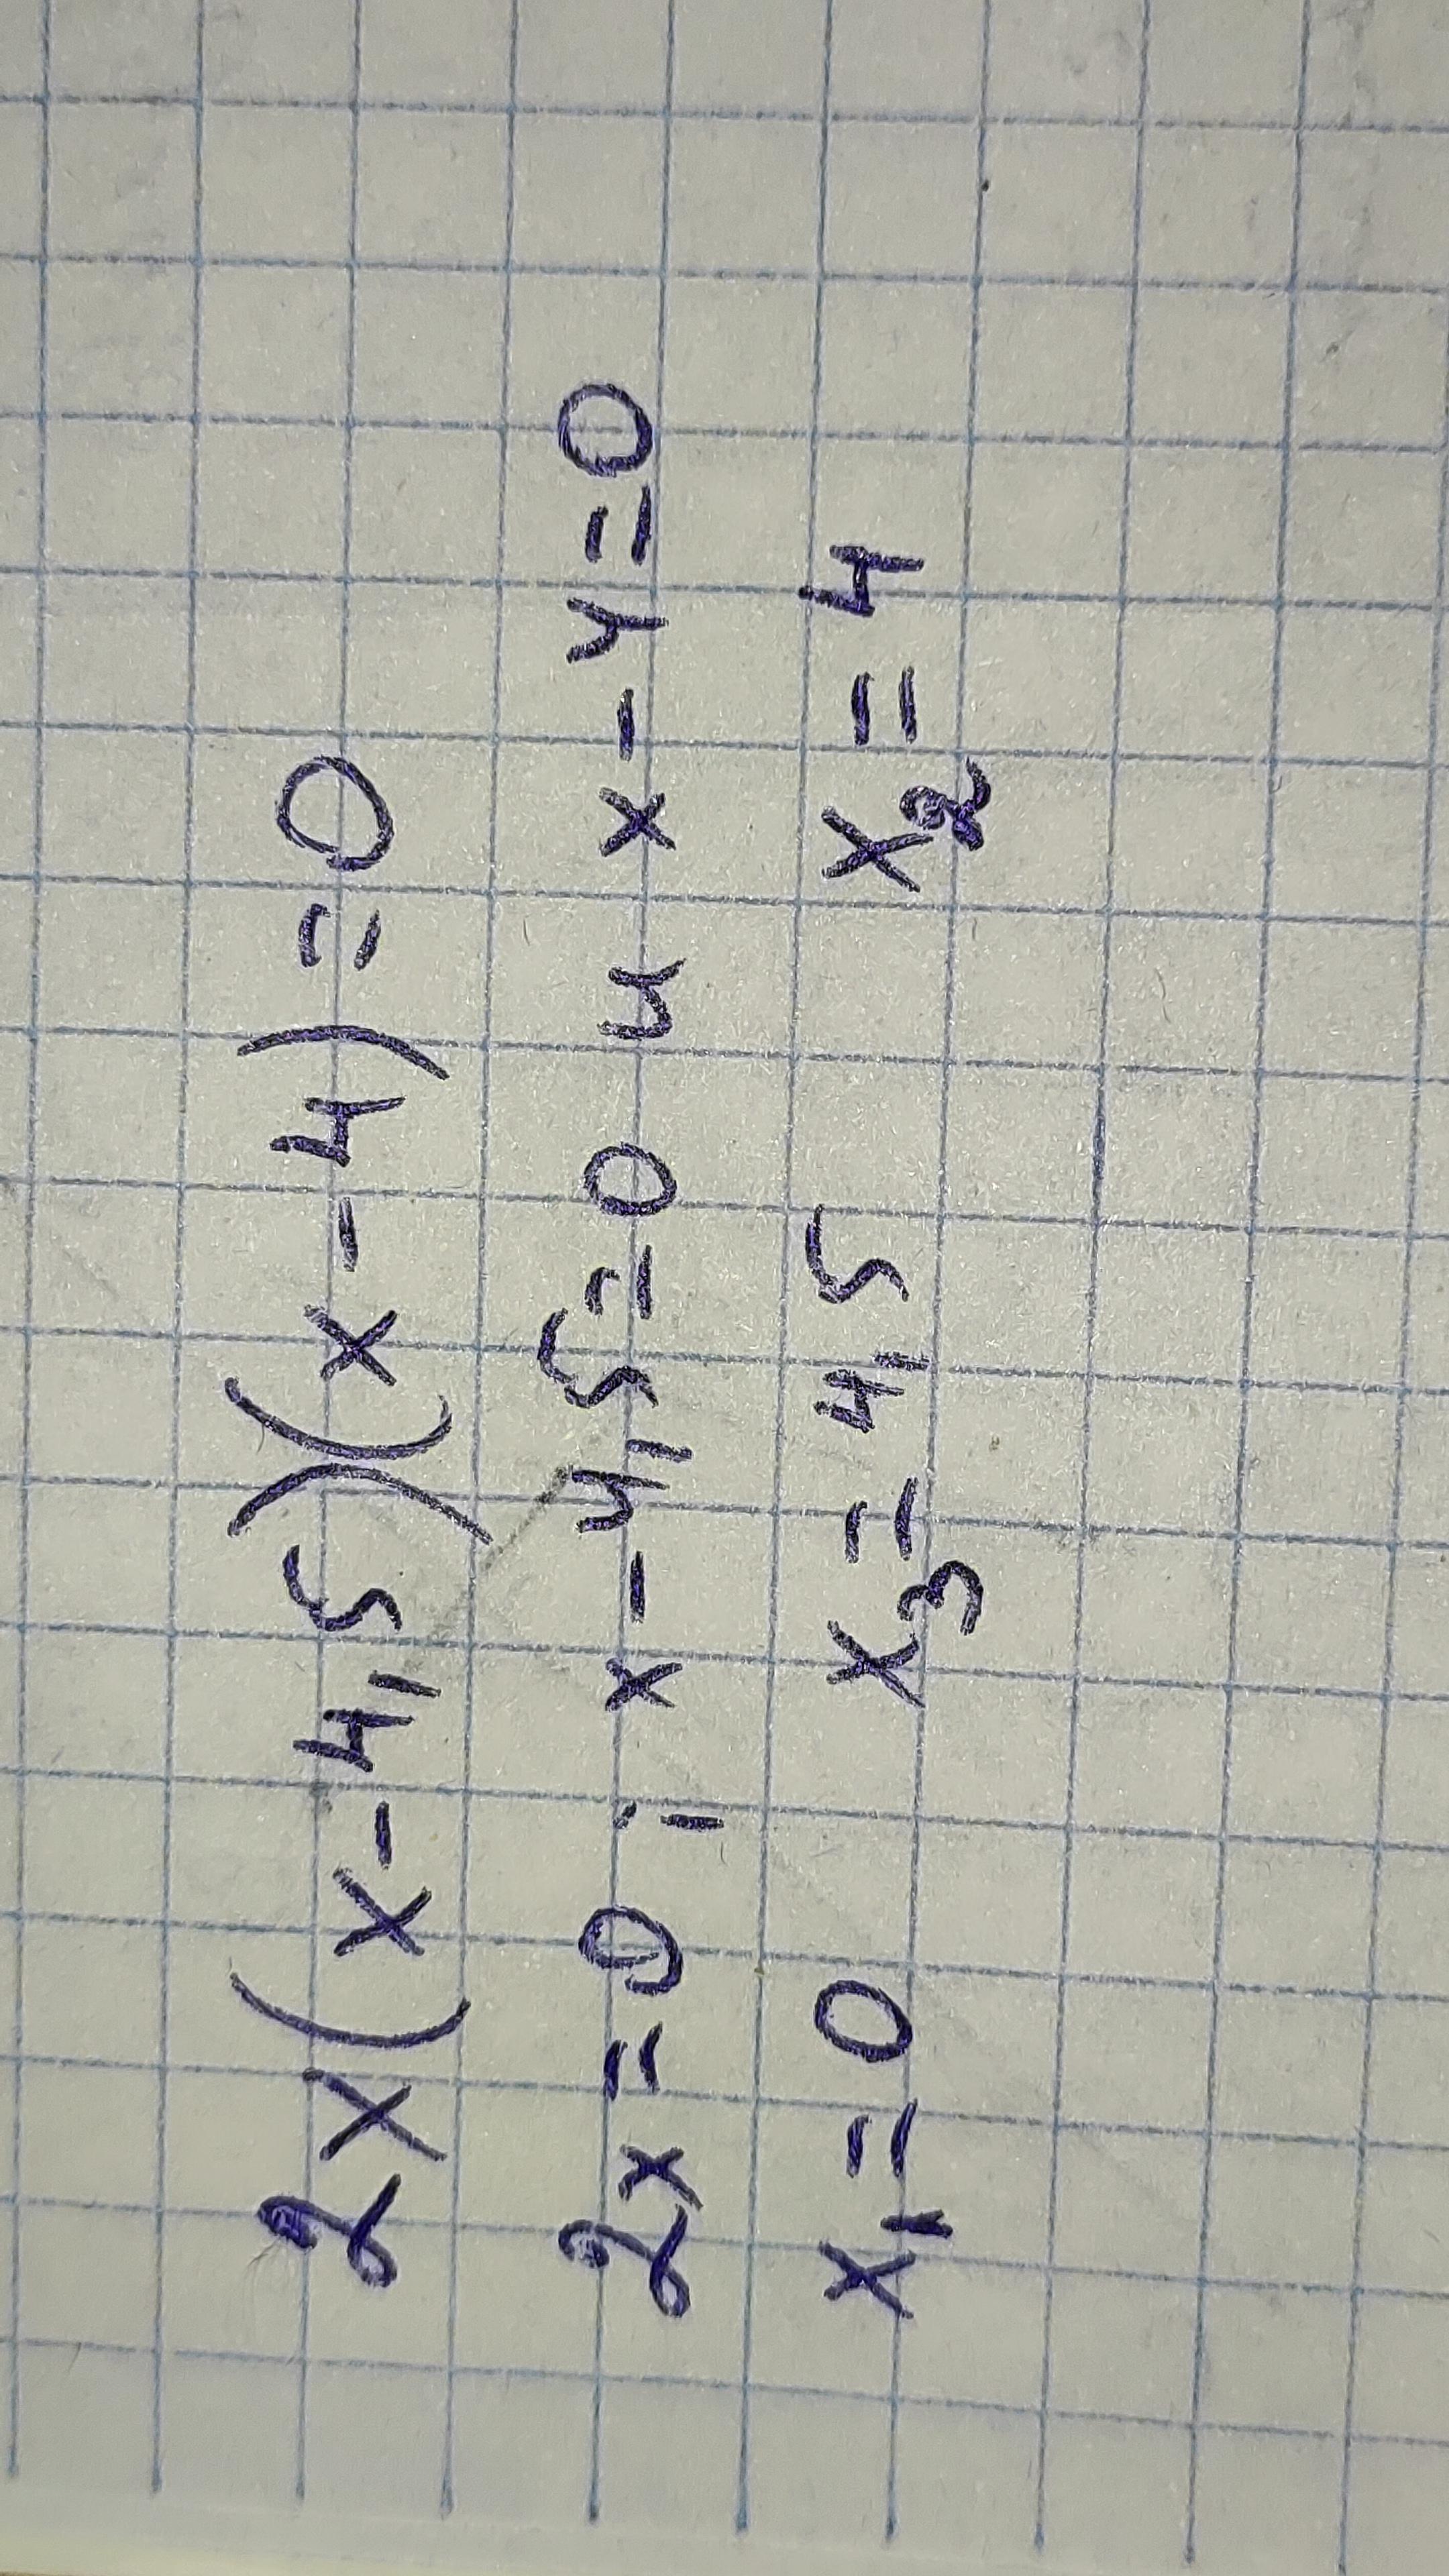 2x(x-4,5)(x-4)=0
2x=0; x-4,5=0 и x-4=0
x₁=0 x₃=4,5 x₂=4